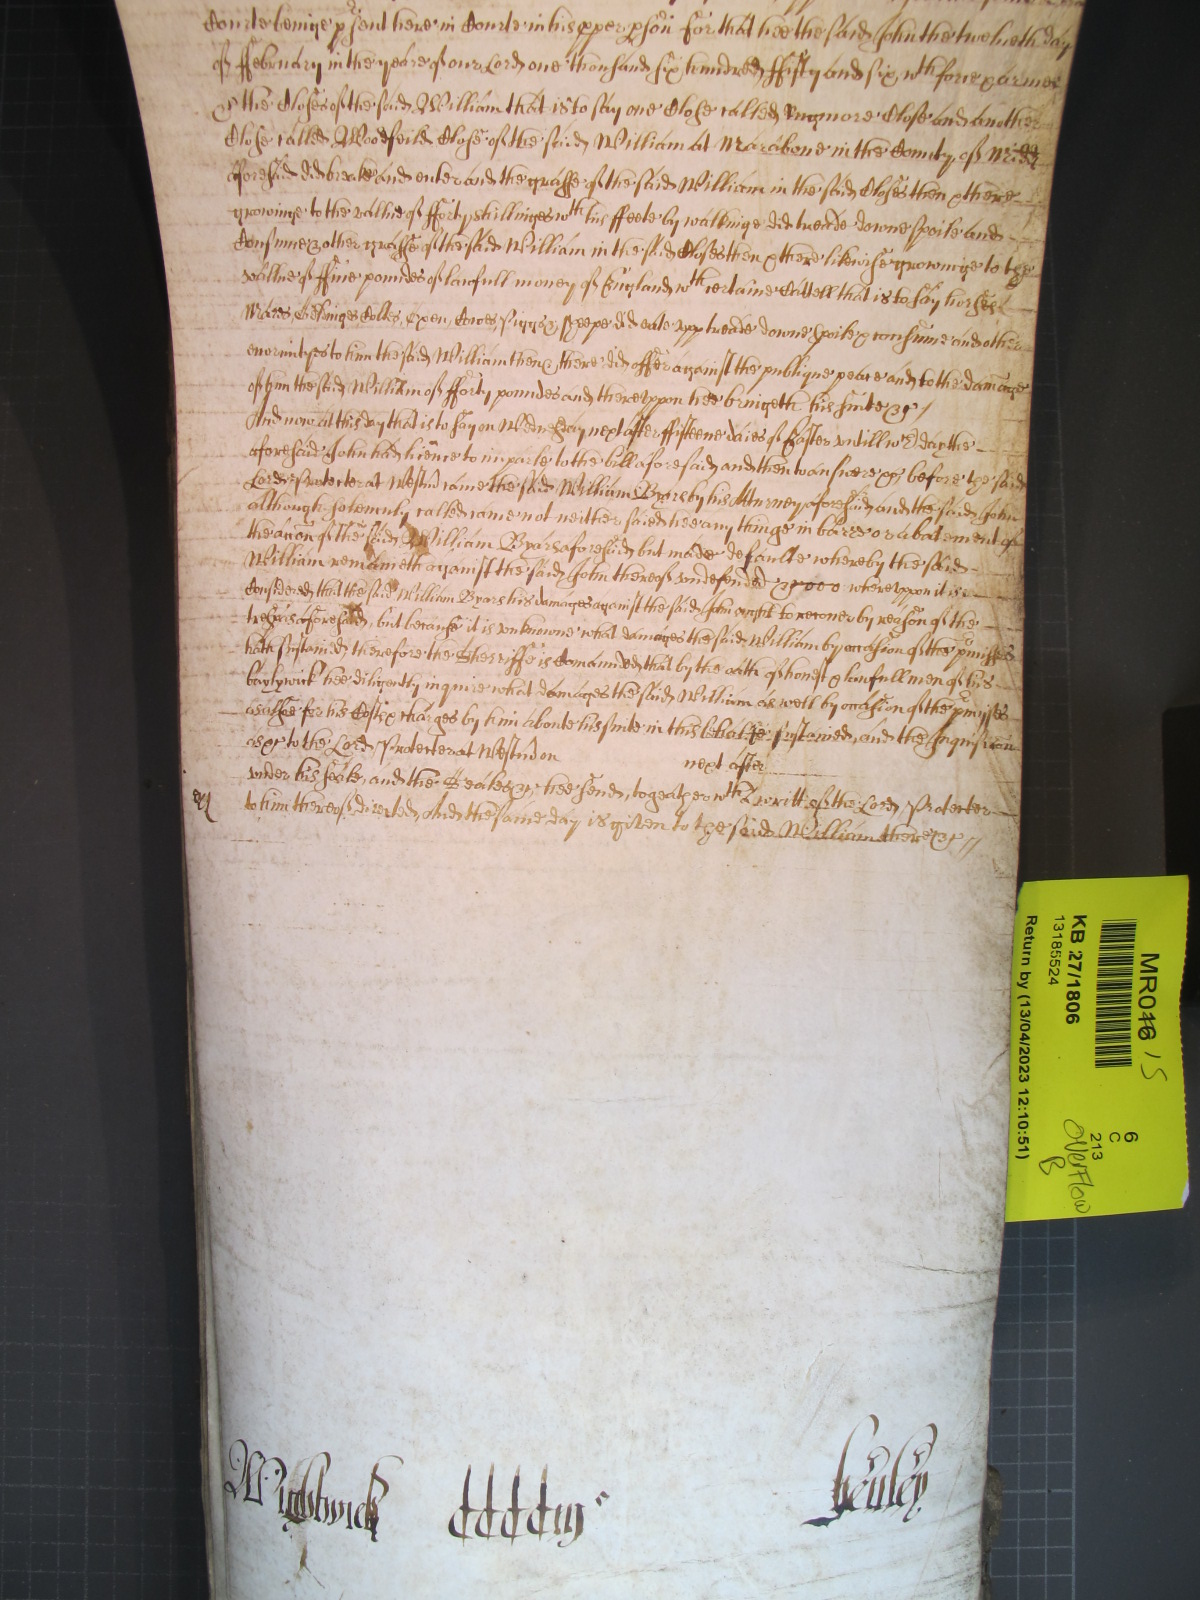 Courte beinge p'sent here in Courte in his pper pson For that hee the said John the twelueth day
of ffebruary in the yeare of our Lord one thousand six hundred ffifty and six wth force & armes
& the Closes of the said William that is to say one Close called Rugmore Close and another
Close called Woodfeild Close of the said William at Marabone in the County of Midd
aforesaid did breake and enter and the grasse of the said William in the said Closes then & there
growinge to the vallue of fforty shillinges wth his ffeete by walkinge did treade downe spoile and
Consume & other grasse of the said William in the said Closes then & there likewise growinge to the
vallue of ffiue poundes of lawfull money of England wth certaine Cattell that is to say horses
Mares Geldinges Coltes, Oxen, Cowes, Piggs & sheepe did eate vpp treade downe spoile & consume and other
enormityes to him the said William then & there did offer against the publique peace and to the damage
of him the said William of fforty poundes and therevppon hee bringeth his suite &c /
And now at this day that is to say on Wednesday next after ffifteene daies of Easter vntill wch day the
aforesaid John had licence to imparle to the bill aforesaid and then to answere &c before the said
Lord Protector at Westm came the said William Byars by his Atturney aforesaid and the said John
although solemnly called came not neither saied hee any thinge in barre or abatement of
the accon of the said William Byars aforesaid but made defaulte whereby the said
William remaineth against the said John thereof vndefended wherevppon it is
Considered that the said William Byars his damages against the said John ought to recouer by reason of the
trespas aforesaid, but because it is vnknowne what damages the said William by occasion of the pmisses
hath sustained therefore the Sherriffe is Comaunded that by the oath of honest & lawfull men of his
baylywick hee diligently inquire what damages the said William as well by occasion of the pmisses
as for his Costs & charges by him aboute his suite in this behalfe sustained, and the Inquisicon
&c to the Lord Protector at Westm on next after
vnder his seale, and the Seales &c hee send, togeather wth writt of the Lord Protector
to him thereof directed, And the same day is giuen to the said William there &c //
Wightwick
Henley
MR046 15
KB 27/1806
13185524
Return by (13/04/2023 12:10:51)
6
C
213
Overflow
B